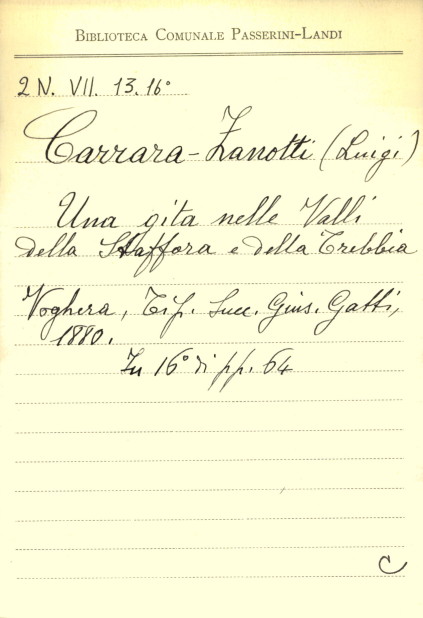 BIBLIOTECA COMUNALE PASSERINI-LANDI
2 N. VII. 13. 16°
Carrara-Zanotti (Luigi)
Una gita nelle Valli
della Staffora e della Trebbia
Voghera, Tip. Succ. Gius. Gatti,
1880.
In 16° di pp. 64
C